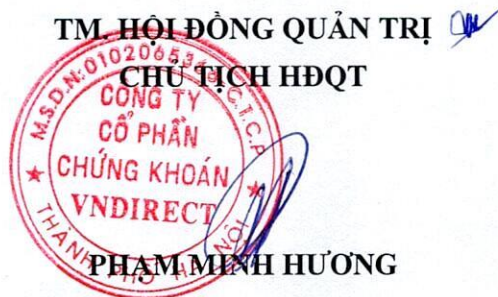 TM. HỘI ĐỒNG QUẢN TRỊ
CHỦ TỊCH HĐQT
M.S.D.N: 0102065366 C.T.C.P
CÔNG TY
CỔ PHẦN
CHỨNG KHOÁN
VNDIRECT
THÀNH PHỐ HÀ NỘI
PHẠM MINH HƯƠNG